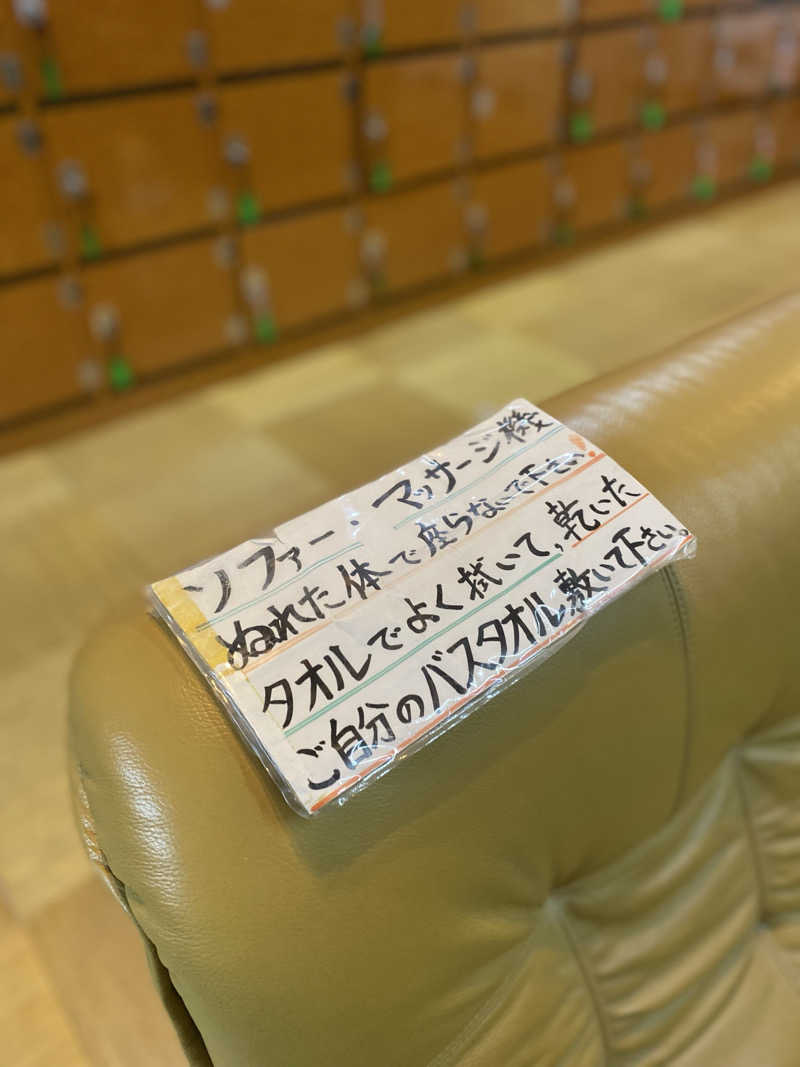 ソファー・マッサージ機
ぬれた体で座らないで下さい!
タオルでよく拭いて,乾いた
ご自分のバスタオル敷いて下さい。